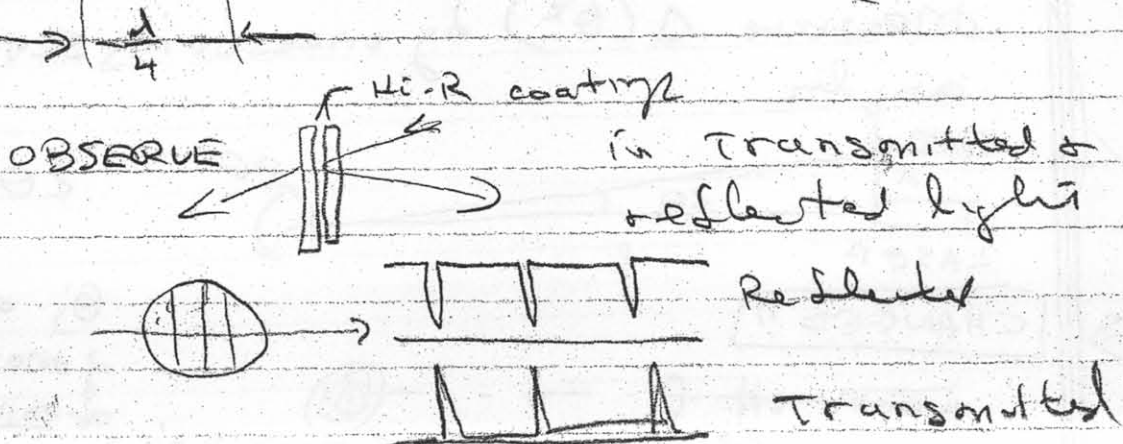 λ/4
Hi-R coatings
OBSERVE
in Transmitted &
reflected light
Reflected
Transmitted